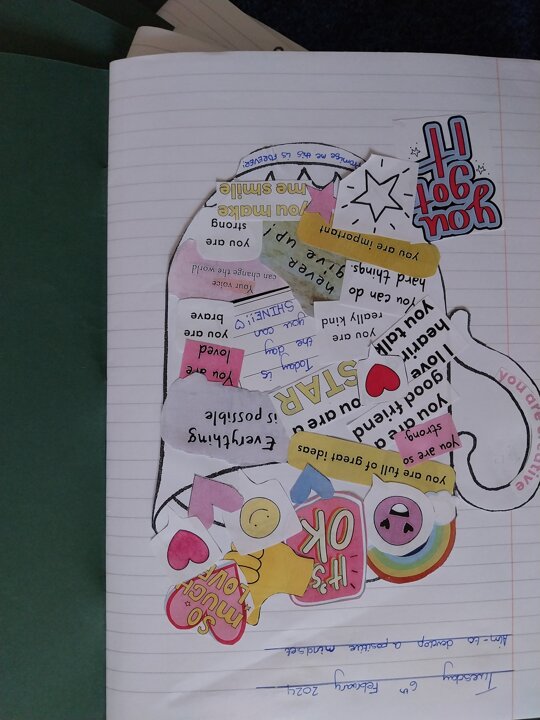 Tuesday 6th February 2024
Aim - to develop a positive mindset
SO
MUCH
LOVE
IT'S
OK
you are full of great ideas
You are so
strong.
Everything
is possible
you are a
good friend
I love
hearin
you talk
You are a
STAR
You are
loved
Today is
the day
you can
SHINE!!
you are
brave
you are
really kind
You can do
hard things.
Your voice
can change the world
never
give up!
you are important
you are
strong
you make
me smile
Promise me this is FOREVER!
you are creative
you
got
IT